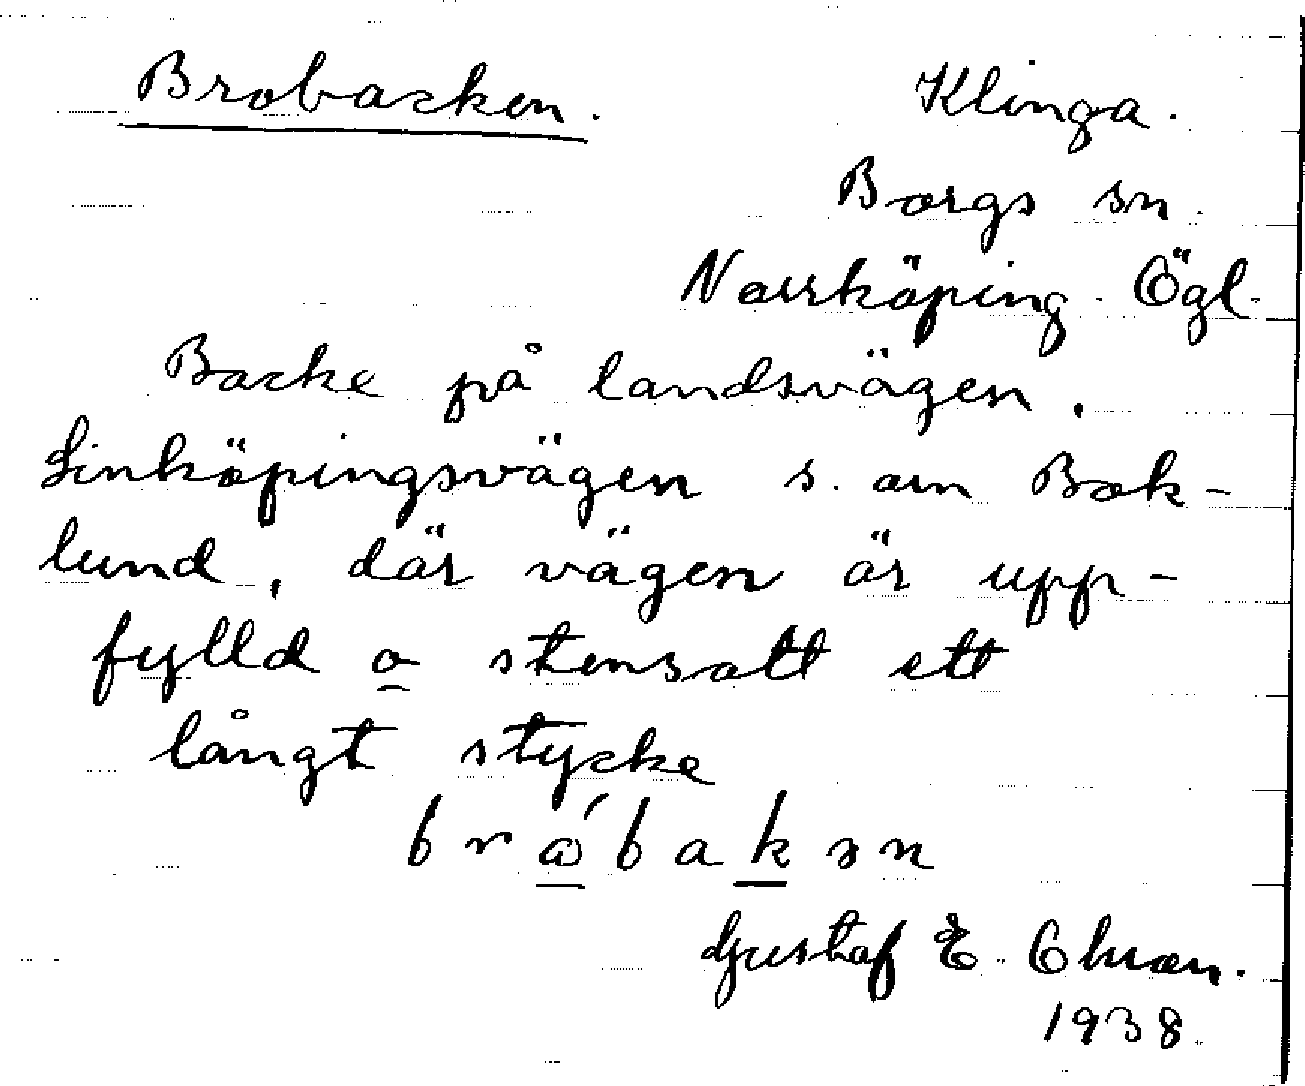 Brobacken. Klinga.
Borgs sn.
Norrköping. Ögl.
Backe på landsvägen,
Linköpingsvägen s. om Bok-
lund, där vägen är upp-
fylld o stensatt ett
långt stycke
bengt
Gustaf E. Ohson.
1938